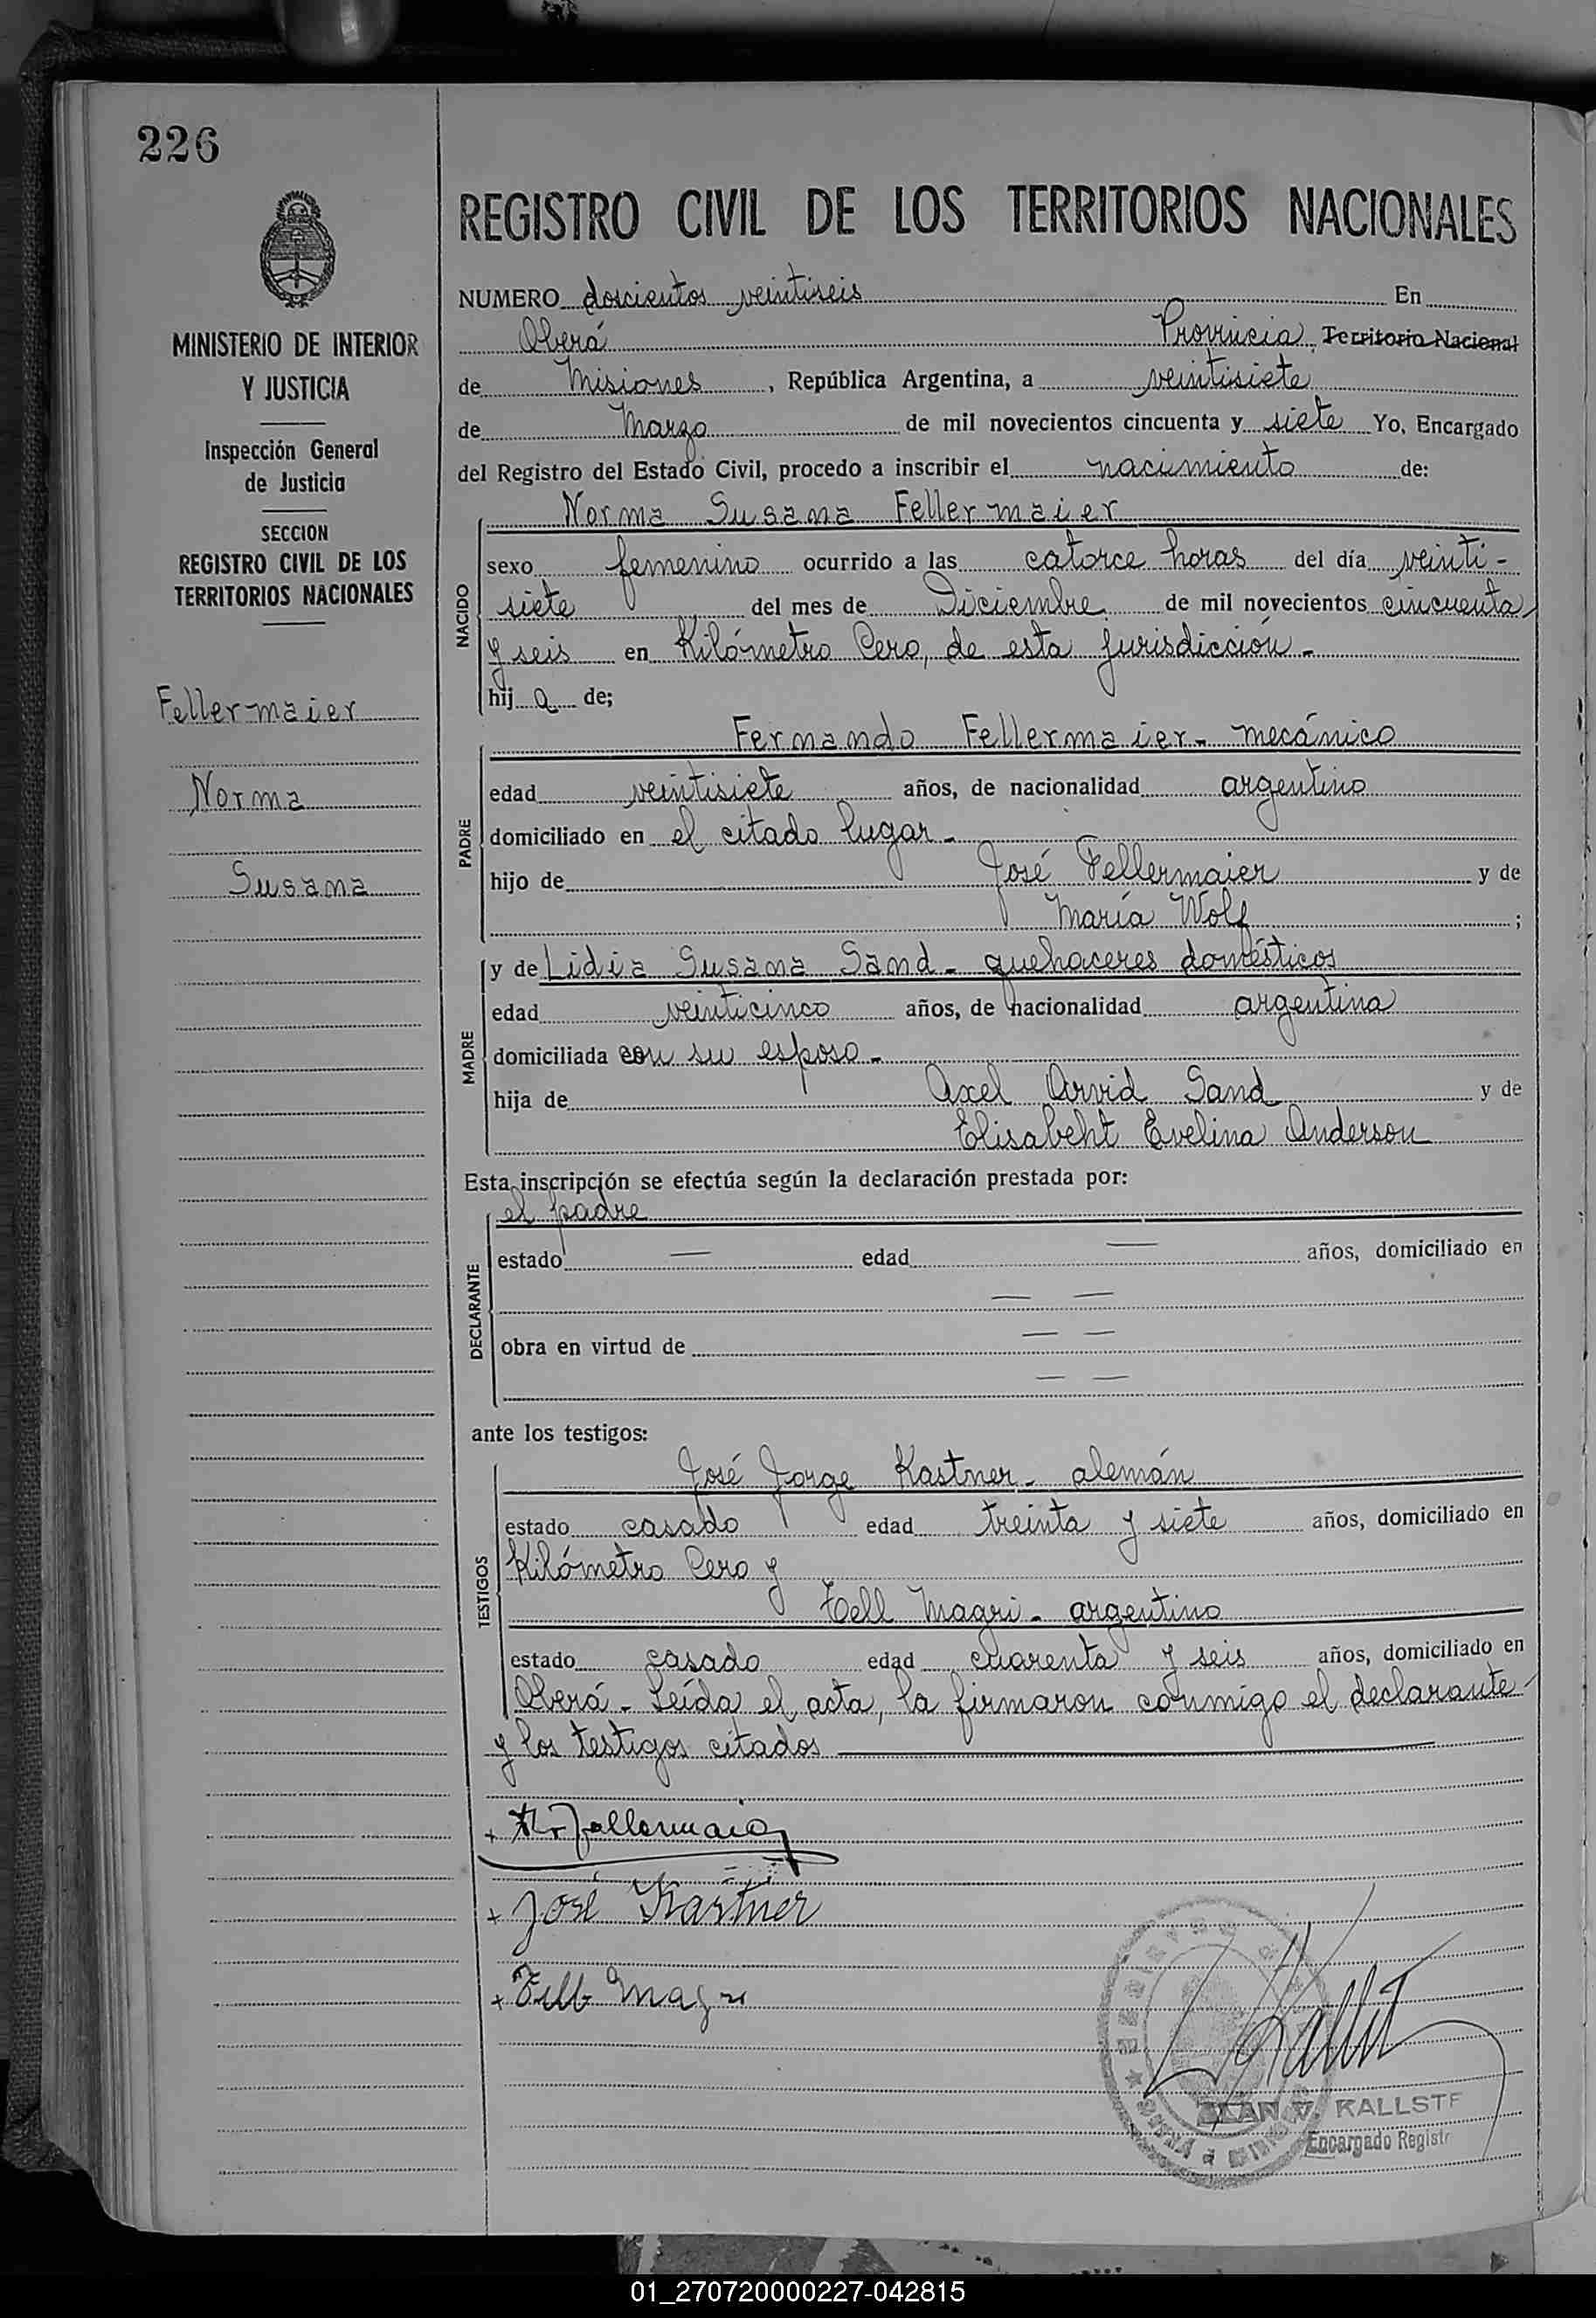 226
MINISTERIO DE INTERIOR
Y JUSTICIA
Inspección General
de Justicia
SECCION
REGISTRO CIVIL DE LOS
TERRITORIOS NACIONALES
Fellermaier
Norma
Susana
REGISTRO CIVIL DE LOS TERRITORIOS NACIONALES
NUMERO doscientos veintiseis En
Oberá Provincia Territorio Nacional
de Misiones, República Argentina, a veintisiete
de Marzo de mil novecientos cincuenta y siete Yo, Encargado
del Registro del Estado Civil, procedo a inscribir el nacimiento de:
NACIDO
Norma Susana Fellermaier
sexo femenino ocurrido a las catorce horas del día veinti-
siete del mes de Diciembre de mil novecientos cincuenta
y seis en Kilómetro Cero, de esta jurisdicción.-
hij a de;
PADRE
Fernando Fellermaier- mecánico
edad veintisiete años, de nacionalidad argentino
domiciliado en el citado lugar-
hijo de José Fellermaier y de
María Wolf ;
MADRE
y de Lidia Susana Sand- quehaceres domésticos
edad veinticinco años, de nacionalidad argentina
domiciliada con su esposo-
hija de Axel Arvid Sand y de
Elisabeht Evelina Anderson
Esta inscripción se efectúa según la declaración prestada por:
DECLARANTE
el padre
estado — edad — años, domiciliado en
— —
obra en virtud de — —
— —
ante los testigos:
TESTIGOS
José Jorge Kastner- alemán
estado casado edad treinta y siete años, domiciliado en
Kilómetro Cero y
Tell Magri- argentino
estado casado edad cuarenta y seis años, domiciliado en
Oberá- Leída el acta, la firmaron conmigo el declarante
y los testigos citados
+ Fellermaier
+ José Kastner
+ Tell Magri
KALLSTE
Encargado Registr
01_270720000227-042815